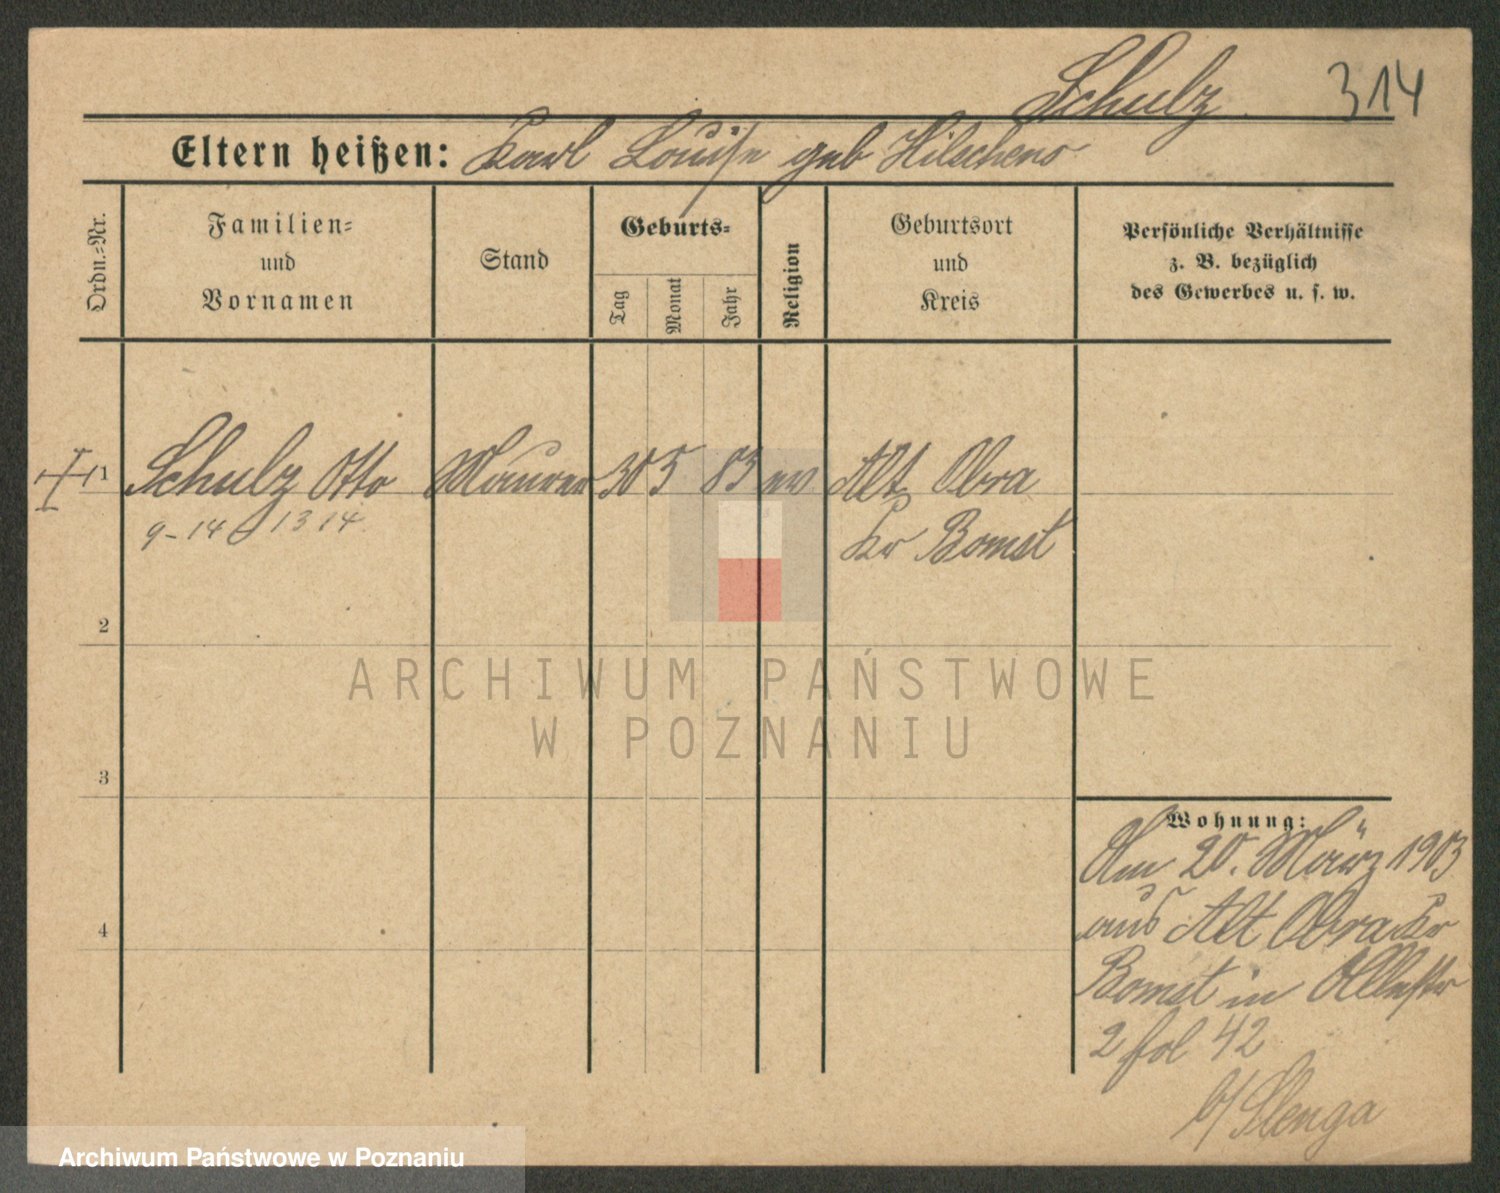 Schulz 314
Eltern heißen: Karl Louise geb Hilschens
Ordn.-Nr.
Familien-
und
Vornamen
Stand
Geburts-
Tag
Monat
Jahr
Religion
Geburtsort
und
Kreis
Persönliche Verhältnisse
z. B. bezüglich
des Gewerbes u. s. w.
1 Schulz Otto Maurer 30 5 83 ev Alt Obra
9-14 13 14
Kr Bomst
2
3
4
Wohnung:
Am 20. März 1903
aus Alt Obra Kr
Bomst in
2 fol 42
b/ Slenga
ARCHIWUM PAŃSTWOWE
W POZNANIU
Archiwum Państwowe w Poznaniu